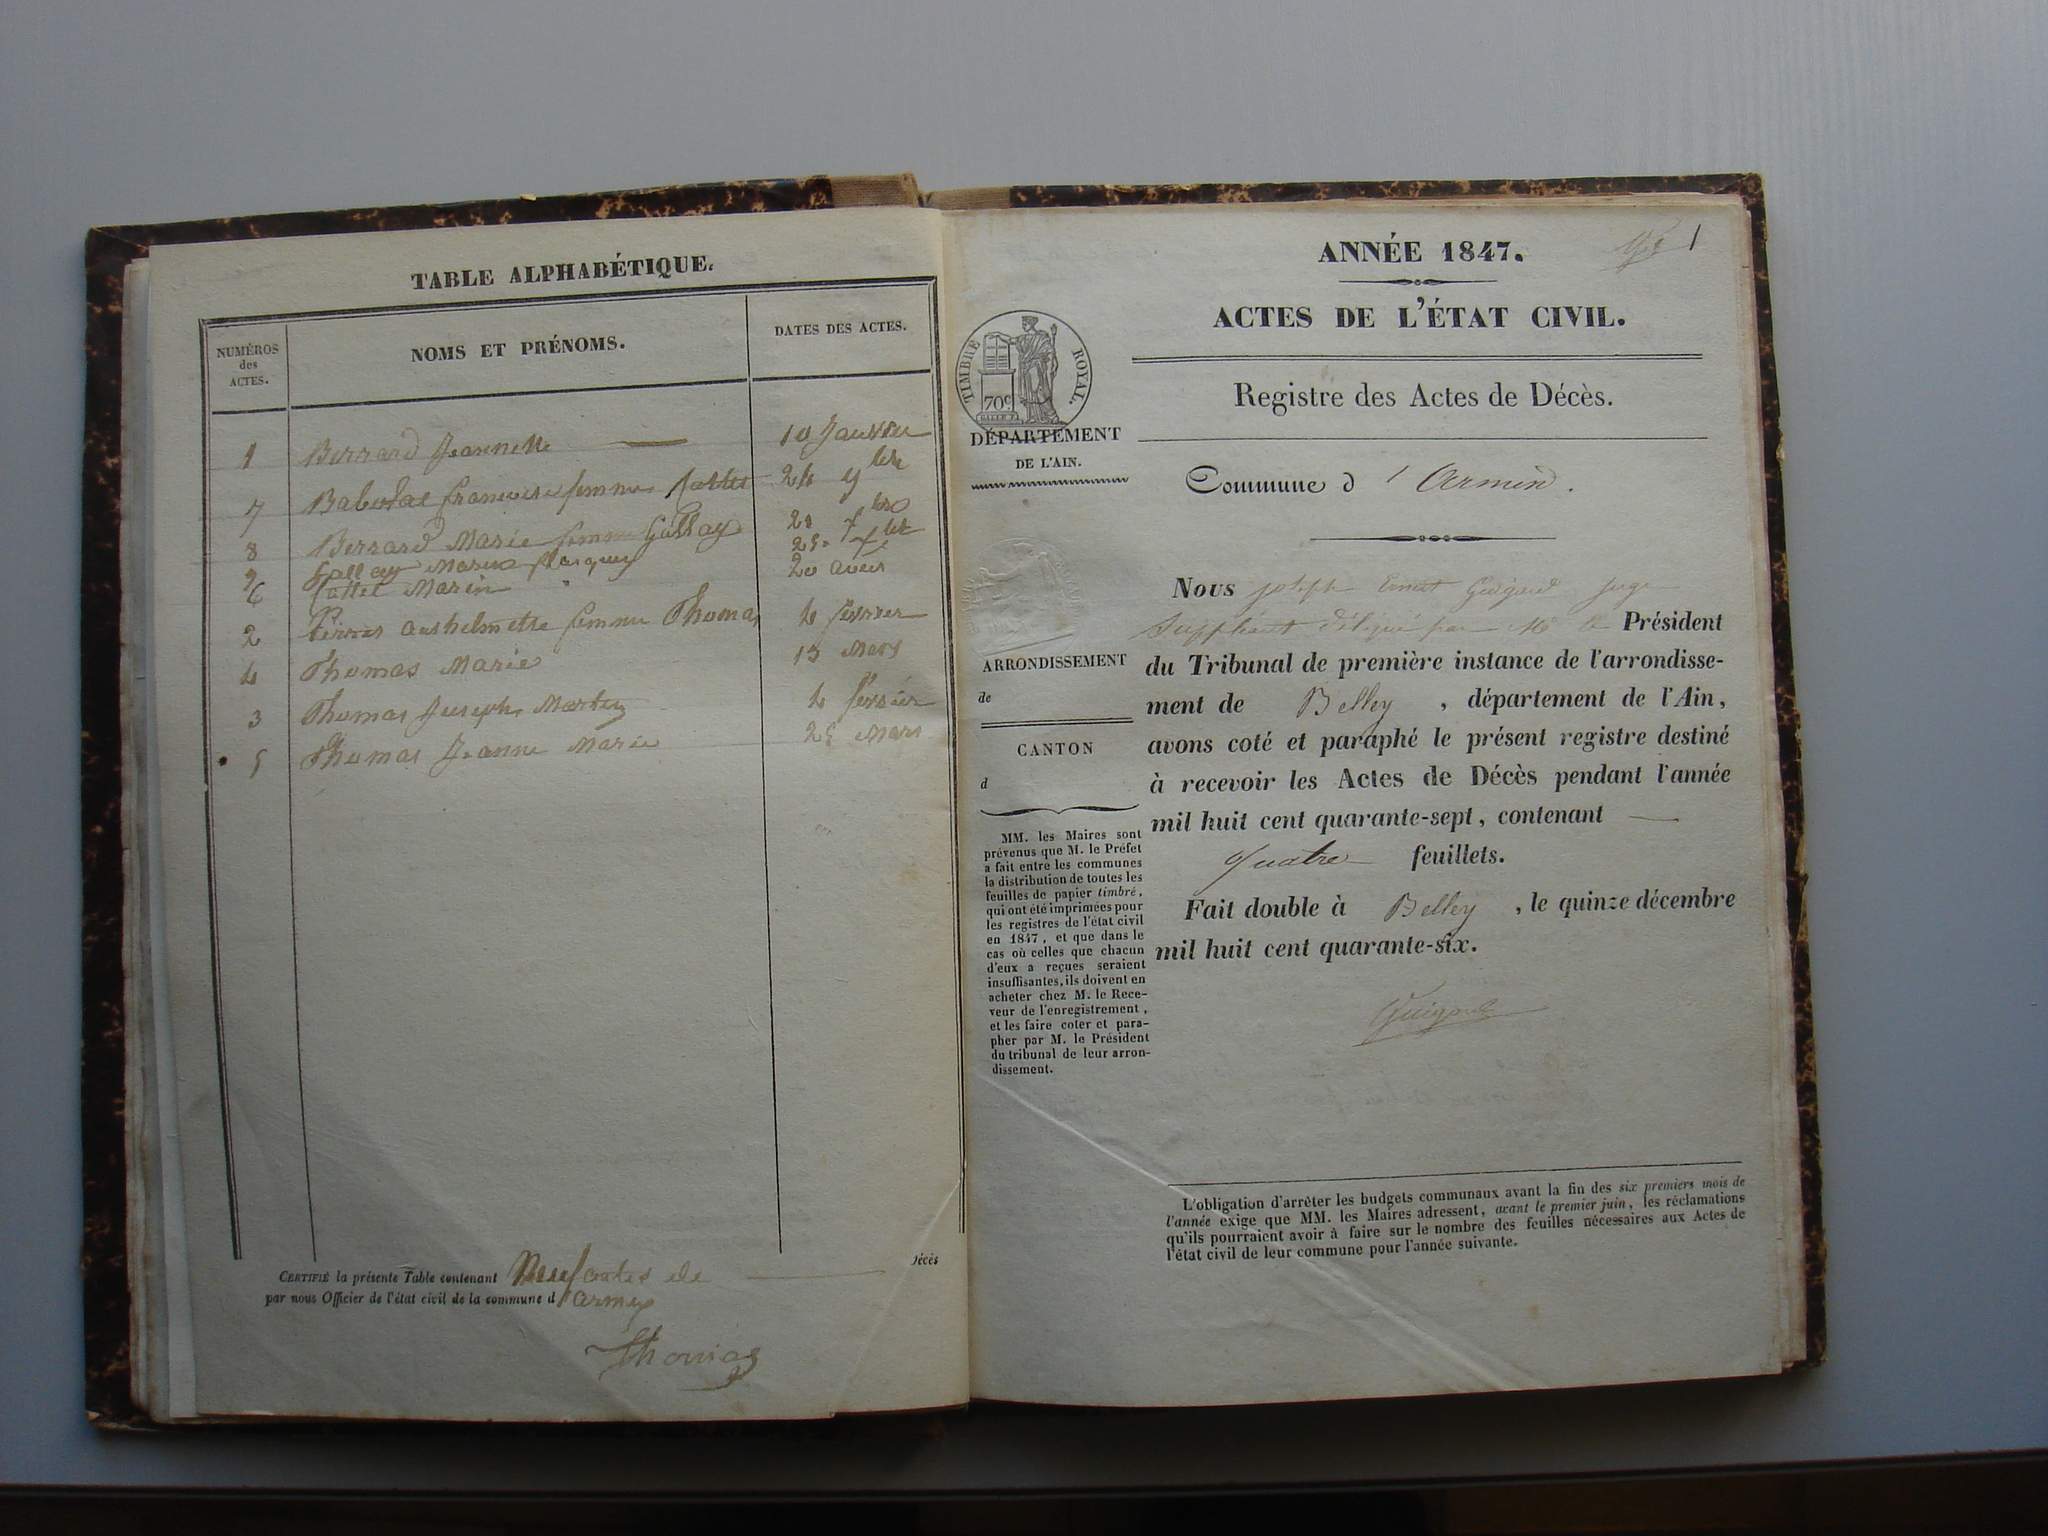 TABLE ALPHABÉTIQUE.
NUMÉROS
des
ACTES.
NOMS ET PRÉNOMS.
DATES DES ACTES.
1 Berrard Jeannette 10 Janvier
7 francoise femme 24 9bre
8 Berrard Marie femme Gallay 20 7bre
9 Gallay 25 7bre
6 Marin 20
2 femme Thomas 4 fevrier
4 Thomas Marie 13 Mars
3 Thomas Joseph Martin 4 fevrier
5 Thomas Jeanne Marie 25 Mars
CERTIFIÉ la présente Table contenant Neuf actes de Décès
par nous Officier de l'état civil de la commune d'
Thomas
1
ANNÉE 1847.
ACTES DE L'ÉTAT CIVIL.
Registre des Actes de Décès.
TIMBRE ROYAL.
70c
DÉPARTEMENT
DE L'AIN.
Commune d'
ARRONDISSEMENT
de
CANTON
d
MM. les Maires sont
prévenus que M. le Préfet
a fait entre les communes
la distribution de toutes les
feuilles de papier timbré,
qui ont été imprimées pour
les registres de l'état civil
en 1847, et que dans le
cas où celles que chacun
d'eux a reçues seraient
insuffisantes, ils doivent en
acheter chez M. le Rece-
veur de l'enregistrement,
et les faire coter et para-
pher par M. le Président
du tribunal de leur arron-
dissement.
Nous joseph Ernest juge
Suppléant délégué par Mr le Président
du Tribunal de première instance de l'arrondisse-
ment de Belley, département de l'Ain,
avons coté et paraphé le présent registre destiné
à recevoir les Actes de Décès pendant l'année
mil huit cent quarante-sept, contenant
quatre feuillets.
Fait double à Belley, le quinze décembre
mil huit cent quarante-six.
L'obligation d'arrêter les budgets communaux avant la fin des six premiers mois de
l'année exige que MM. les Maires adressent, avant le premier juin, les réclamations
qu'ils pourraient avoir à faire sur le nombre des feuilles nécessaires aux Actes de
l'état civil de leur commune pour l'année suivante.